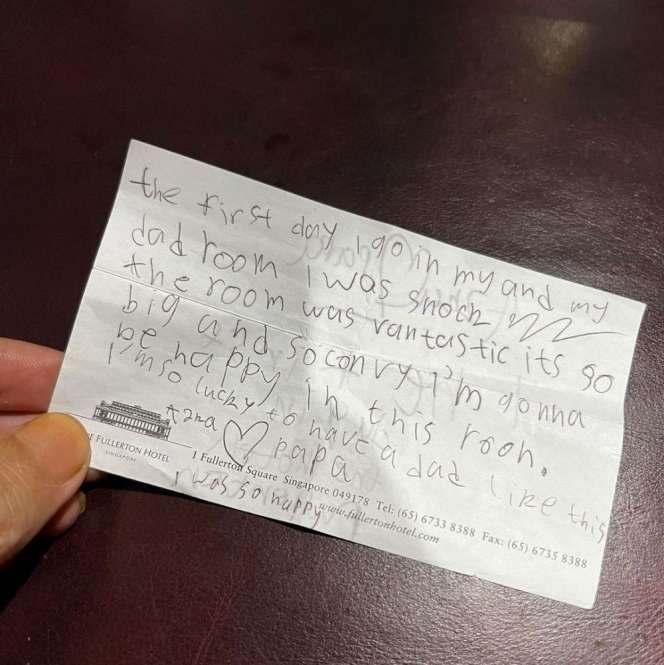 the first day I go in my and my
dad room I was shock
the room was vantastic its so
big and so convy I'm gonna
be happy in this rooh.
I'm so lucky to have a dad like this
♡ papa
THE FULLERTON HOTEL
SINGAPORE
1 Fullerton Square Singapore 049178 Tel: (65) 6733 8388 Fax: (65) 6735 8388
www.fullertonhotel.com
I was so happy